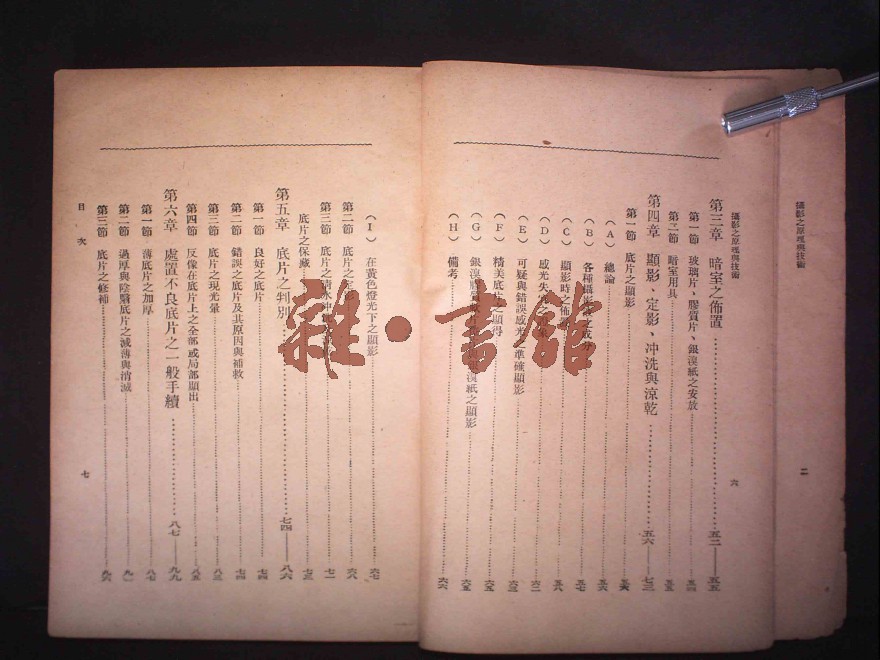 攝影之原理與技術
二
攝影之原理與技術
六
第三章 暗室之佈置 五二——五五
第一節 玻璃片、膠質片、銀溴紙之安放 五四
第二節 暗室用具 五五
第四章 顯影、定影、冲洗與涼乾 五六——七三
第一節 底片之顯影 五六
（A）總論 五六
（B）各種攝影 五七
（C）顯影時之佈 五八
（D）感光失 六二
（E）可疑與錯誤感光 準確顯影 六三
（F）精美底片之顯得 六五
（G）銀溴膠 紙之顯影 六五
（H）備考 六六
（I）在黃色燈光下之顯影 六七
第二節 底片之定影 六八
第三節 底片之清水冲 七一
底片之保藏 七三
第五章 底片之判別 七四——八六
第一節 良好之底片 七四
第二節 錯誤之底片及其原因與補救 七四
第三節 底片之現光暈 八三
第四節 反像在底片上之全部或局部顯出 八五
第六章 處置不良底片之一般手續 八七——九九
第一節 薄底片之加厚 八七
第二節 過厚與陰翳底片之減薄與消滅 九一
第三節 底片之修補 九六
目次
七
雜·書館